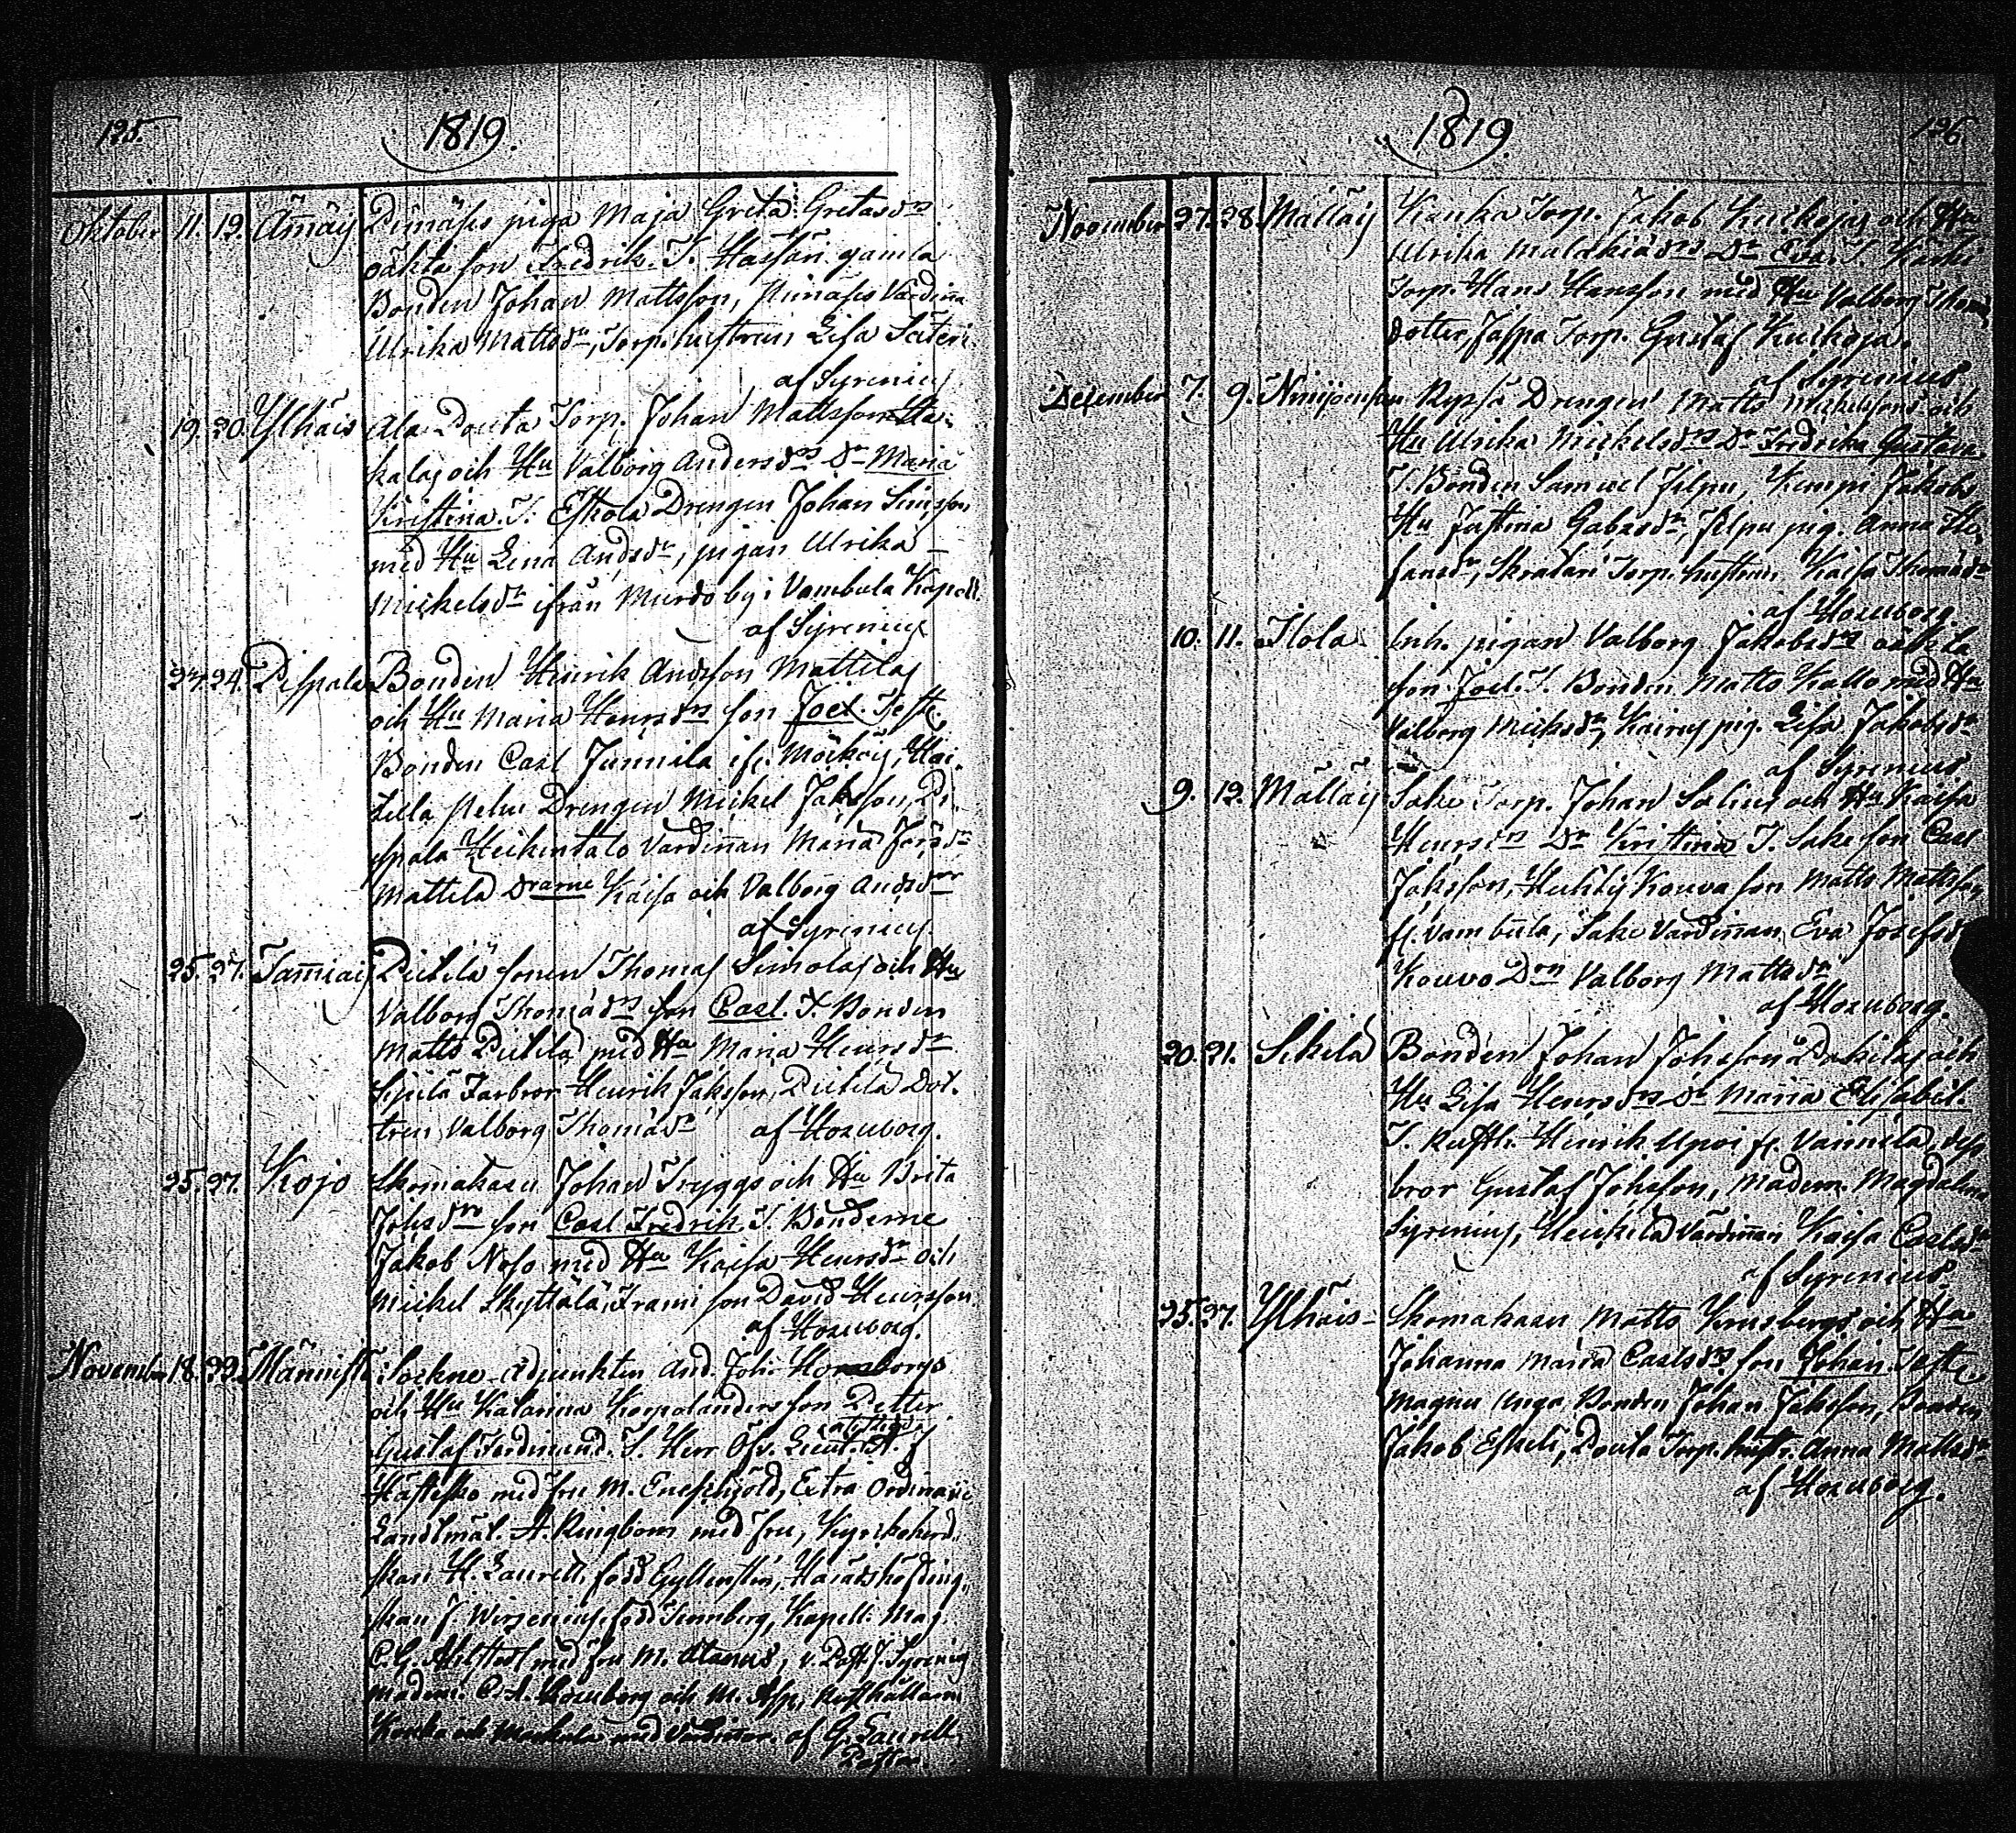 125.
1819.
Oktober 11. 12. Ämäij Pimäses piga Maja Greta Gretasdrs
oäkta son Fredrik. T. Hassan gamla
Bonden Johan Mattsson, Pimäses Värdinna
Ulrika Mattsdr, Torp. hustrun Lisa Säteri
af Syrenius
19. 20. Ylhäis Ala Pouta Torp. Johan Mattsson
kalas och Hu Valborg Andersdrs dr Maria
Kristina. T. Eskola Drengen Johan Simsson
med Hu Lena Andsdr, pigan Ulrika
Mickelsdr ifrån Murdo by i Vambula Kapell.
af Syrenius
24. Pispala Bonden Henrik Andsson Mattilas
och Hu Maria Henrsdrs son Joel. Teste
Bonden Carl Junnila ifr. Mäihöij, Hai-
tella Drengen Mickel Jaksson, Pi-
spala Heikintalo Värdinnan Maria Jörsdr
Mattila Drarne Kaisa och Valborg Andsdrar
af Syrenius.
25. 27. Tamiais Pietilä sonen Thomas Simolas och Hu
Valborg Thomädrs son Carl. T. Bonden
Matts Pietilä med Hu Maria Henrsdr
Sipilä Farbror Henrik Jaksson, Pietilä Dot-
tren Valborg Thomädr af Horuborg.
25. 27. Kojo Skomakaren Johan Tryggs och Hu Brita
Johsdrs son Carl Fredrik. T. Bönderne
Jakob Noso med Hu Kaisa Henrsdr och
Mickel Skyttälä, Frami son David Henrsson.
af Horuborg.
November 18. 22. Männistö Sockne-adjunkten And. Joh. Horuborgs
och Hu Katarina Kopolanders son Petter
Gustaf Ferdinand. T. Herr Öfv. Lieut. A. J.
Hästesko med fru M. Eneschjöld, Extra Ordinarie
Landtmät. A. Ringbom med fru, Kyrkoherd-
skan H. Laurell född Gyllenstén, Häradshöfding-
skan J. Wirzenius, född Tennberg, Kapell. Mag.
C. G. Ahlstedt med fru M. Alanus, v. Past. J. Syrenius
Madem. C. A. Horuborg och M. Asp, Rusthållarn
med Värdinnor. af G. Laurell
Pastor.
1819.
126.
November 27. 28. Mällaij Kanka Torp. Jakob Kuikojas och Hu
Ulrika Malakiädrs Dr Eva. T. Kaski
Torp. Hans Hansson med Hu Valborg Thomä
dotter, Jaspa Torp. Gustaf Kuikoja.
af Syrenius
December 7. 9. Ryssä Drengen Matts Mickelssons och
Hu Ulrika Mickelsdrs Dr Fredrika Gustava.
T. Bonden Samuel Filpu, Kempi Jakobs
Hu Justina Gabrsdr, Filpu pig. Anna Ste-
fansdr, Skradari Torp. hustrun Kaisa Thomädr
af Horuborg.
10. 11. Ilola Inh. pigan Valborg Jakobsdrs oäkta
son Joel. T. Bonden Matts Kallo med Hu
Valborg Micksdr, Kairus pig. Lisa Jakobsdr
af Syrenius
9. 12. Mällaij Sake Torp. Johan Salins och Hu Kaisa
Henrsdrs Dr Kristina T. Sake son Carl
Jaksson, Huhtis Kouva son Matts Mattsson
fr. Vambula, Sake Värdinnan Eva Josefsdr
Kouvo Drn Valborg Mattsdr
af Horuborg.
20. 21. Sikilä Bonden Johan Johssons Pakilas och
Hu Lisa Henrsdrs dr Maria Elisabet.
T. Rusth. Henrik Upoi fr. Vainnila, dess
bror Gustaf Johsson, Madem. Magdalena
Syrenius, Heikilä Värdinnan Kaisa Carlsdr
af Syrenius.
25. 27. Ylhäis Skomakaren Matts Krusbergs och Hu
Johanna Maria Carlsdrs son Johan. Teste
Bonden Johan Jaksson, Bonden
Jakob Eskeli, Pouta Torp. hustr. Anna Mattsdr
af Horuborg.